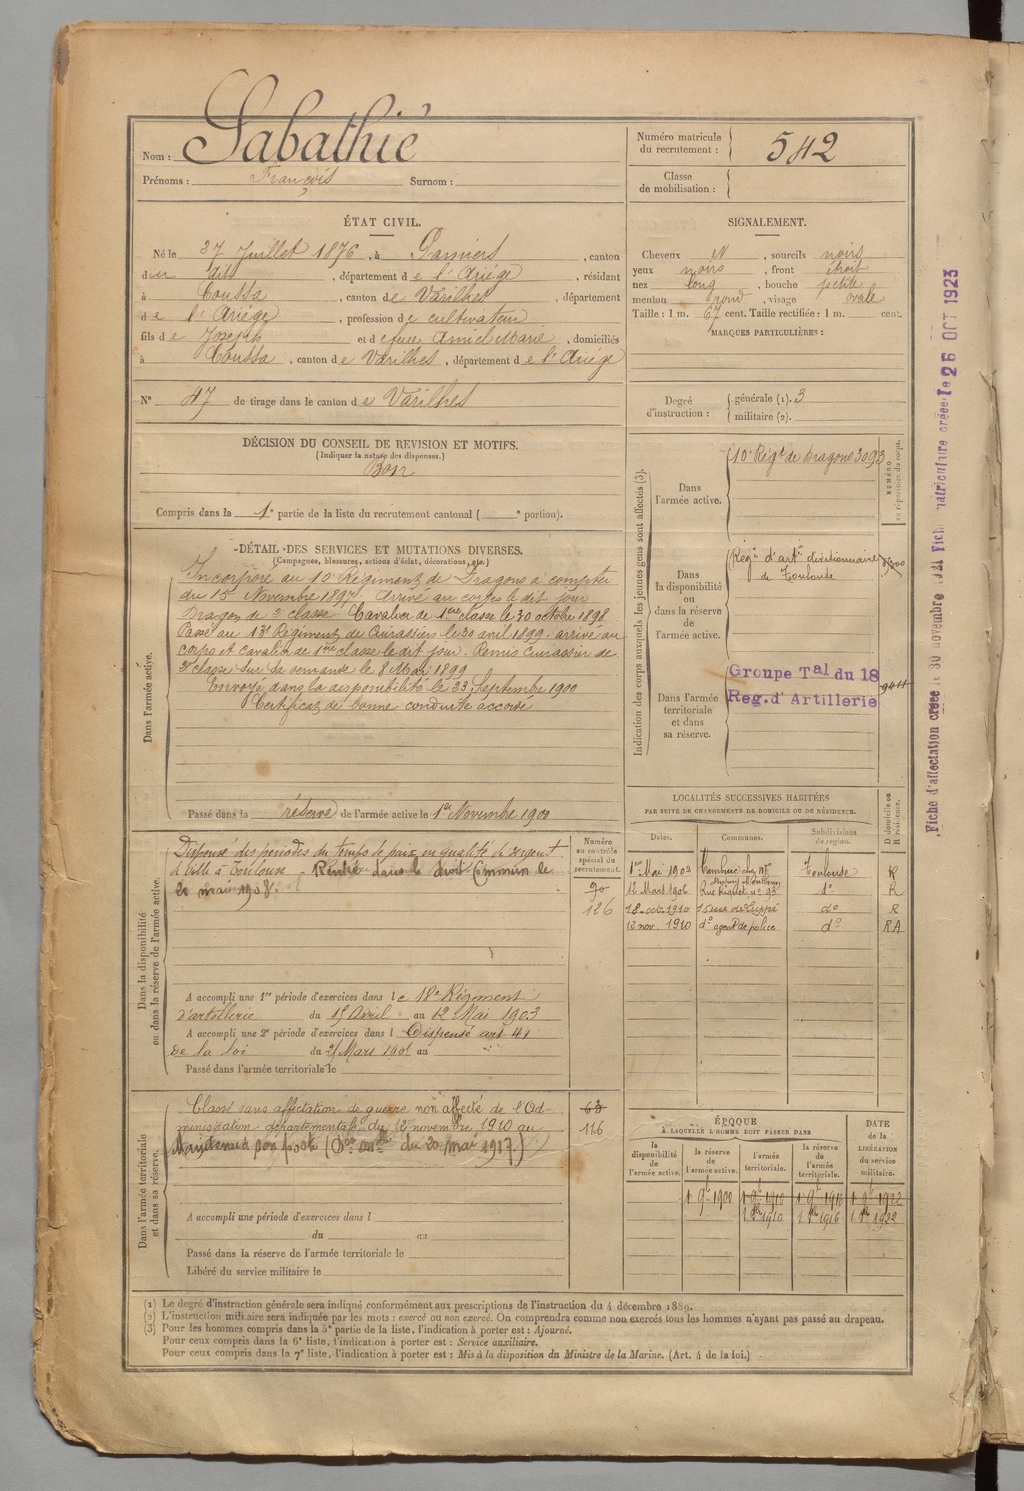 Nom : Sabathié
Prénoms : François Surnom :
Numéro matricule du recrutement : 542
Classe de mobilisation :
ÉTAT CIVIL.
Né le 27 Juillet 1876, à Pamiers, canton
du dit, département de l'Ariège, résidant
à Coussa, canton de Varilhes, département
de l'Ariège, profession de cultivateur
fils de Joseph et de feue Amiel Marie, domiciliés
à Coussa, canton de Varilhes, département de l'Ariège
N° 47 de tirage dans le canton de Varilhes
SIGNALEMENT.
Cheveux N, sourcils noirs
yeux noirs, front étroit
nez long, bouche petite
menton rond, visage ovale
Taille : 1 m. 67 cent. Taille rectifiée : 1 m. cent.
MARQUES PARTICULIÈRES :
Degré d'instruction : générale (1). 3
militaire (2).
DÉCISION DU CONSEIL DE REVISION ET MOTIFS.
(Indiquer la nature des dispenses.)
Bon
Compris dans la 1e partie de la liste du recrutement cantonal ( e portion).
DÉTAIL DES SERVICES ET MUTATIONS DIVERSES.
(Campagnes, blessures, actions d'éclat, décorations, etc.)
Dans l'armée active.
Incorporé au 10e Régiment de Dragons à compter
du 15 Novembre 1897. Arrivé au corps le dit jour
Dragon de 2e classe. Cavalier de 1ère classe le 30 octobre 1898
Passé au 13e Régiment de Cuirassiers le 30 avril 1899. arrivé au
corps et cavalier de 1ère classe le dit jour. Remis Cuirassier de
2e classe sur sa demande le 8 Mai 1899
Envoyé dans la disponibilité le 23 Septembre 1900
Certificat de bonne conduite accordé
Passé dans la réserve de l'armée active le 1er Novembre 1900
Indication des corps auxquels les jeunes gens sont affectés (3).
NUMÉRO au répertoire du corps.
Dans l'armée active.
10e Régt de Dragons 3093
Dans la disponibilité ou dans la réserve de l'armée active.
Régt d'artie divisionnaire
de Toulouse
Dans l'armée territoriale et dans sa réserve.
Groupe Tal du 18
Reg. d'Artillerie
Fiche d'affectation créée le 30 novembre 1921 Fiche matriculaire créée le 26 OCT 1923
Dans la disponibilité ou dans la réserve de l'armée active.
Dispensé des périodes du temps de paix en qualité de sergent
de Ville à Toulouse - Rentré dans le droit Commun le
20 mai 1908
Numéro au contrôle spécial du recrutement.
90
126
A accompli une 1re période d'exercices dans le 18e Régiment
d'artillerie du 15 Avril au 12 Mai 1903
A accompli une 2e période d'exercices dans l Dispensé art 41
de la loi du 21 Mars 1905 au
Passé dans l'armée territoriale le
LOCALITÉS SUCCESSIVES HABITÉES
PAR SUITE DE CHANGEMENTS DE DOMICILE OU DE RÉSIDENCE.
Dates. Communes. Subdivisions de région. D domicile ou R résidence.
1er Mai 1903 Toulouse R
12 Mars 1906 Rue Riquet n° 93 R
18 oct. 1910 15 rue de do R
12 nov. 1910 do agent de police do RA
Dans l'armée territoriale et dans sa réserve.
Classé sans affectation de guerre non affecté de l'Ad-
ministration départementale du 12 novembre 1910 au
Maintenu à son poste (Don mlle du 20 mai 1917.)
63
116
A accompli une période d'exercices dans l
du au
Passé dans la réserve de l'armée territoriale le
Libéré du service militaire le
ÉPOQUE
À LAQUELLE L'HOMME DOIT PASSER DANS
la disponibilité de l'armée active. la réserve de l'armée active. l'armée territoriale. la réserve de l'armée territoriale. DATE de la LIBÉRATION du service militaire.
1. 9bre 1900 1. 9bre 1910 1. 9bre 1916 1. 9bre 1922
1. 8bre 1910 1. 8bre 1916 1. 8bre 1922
(1) Le degré d'instruction générale sera indiqué conformément aux prescriptions de l'instruction du 4 décembre 1889.
(2) L'instruction militaire sera indiquée par les mots : exercé ou non exercé. On comprendra comme non exercés tous les hommes n'ayant pas passé au drapeau.
(3) Pour les hommes compris dans la 5e partie de la liste, l'indication à porter est : Ajourné.
Pour ceux compris dans la 6e liste, l'indication à porter est : Service auxiliaire.
Pour ceux compris dans la 7e liste, l'indication à porter est : Mis à la disposition du Ministre de la Marine. (Art. 4 de la loi.)